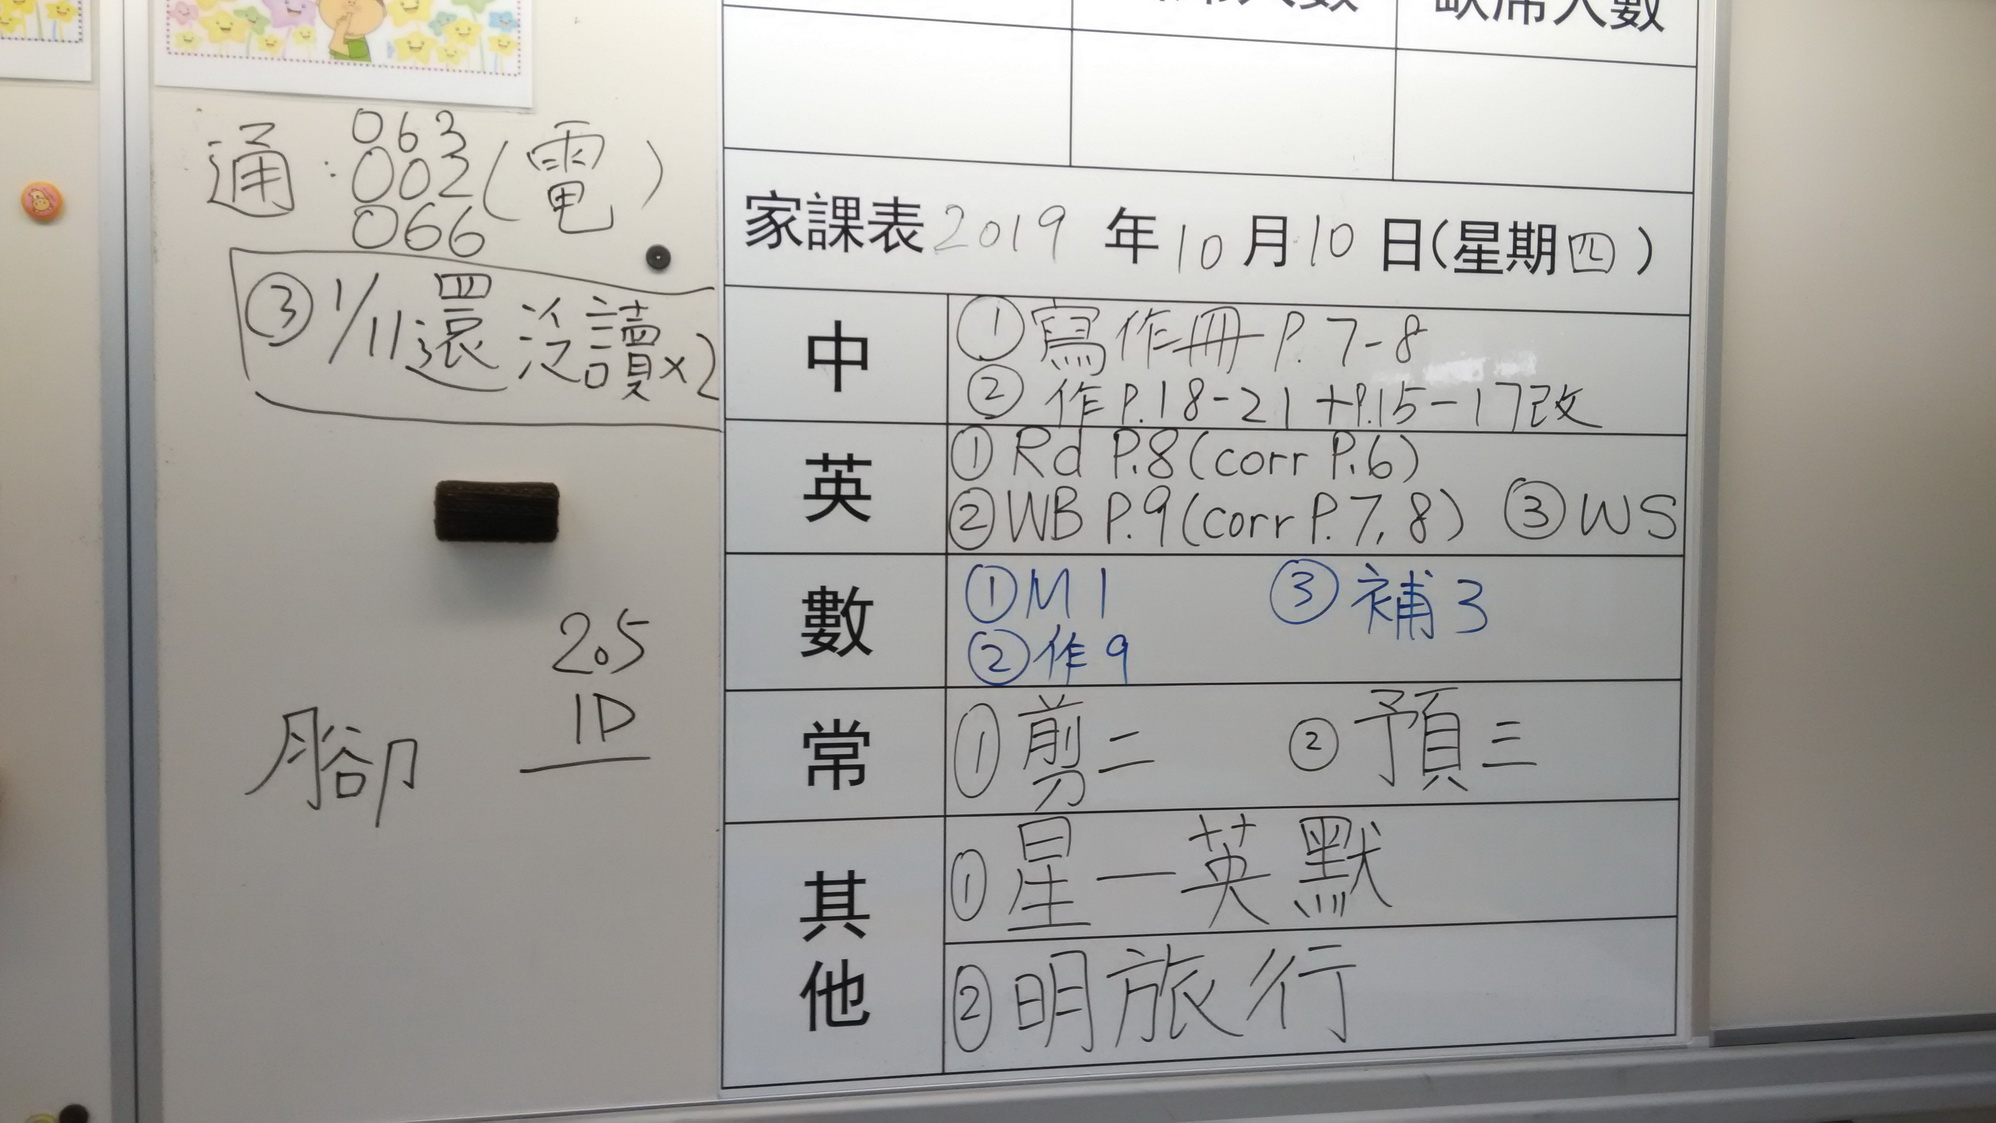 席人數 缺席人數
通：063
002（電）
066
③1/11還沒讀x2
2.5
1D
腳
家課表2019年10月10日(星期四)
中
①寫作冊P.7-8
②作P.18-21+P.15-17改
英
①Rd P.8(corr P.6)
②WB P.9(corr P.7,8) ③WS
數
①M1 ③補3
②作9
常
①剪二 ②預三
其他
①星一英默
②明旅行